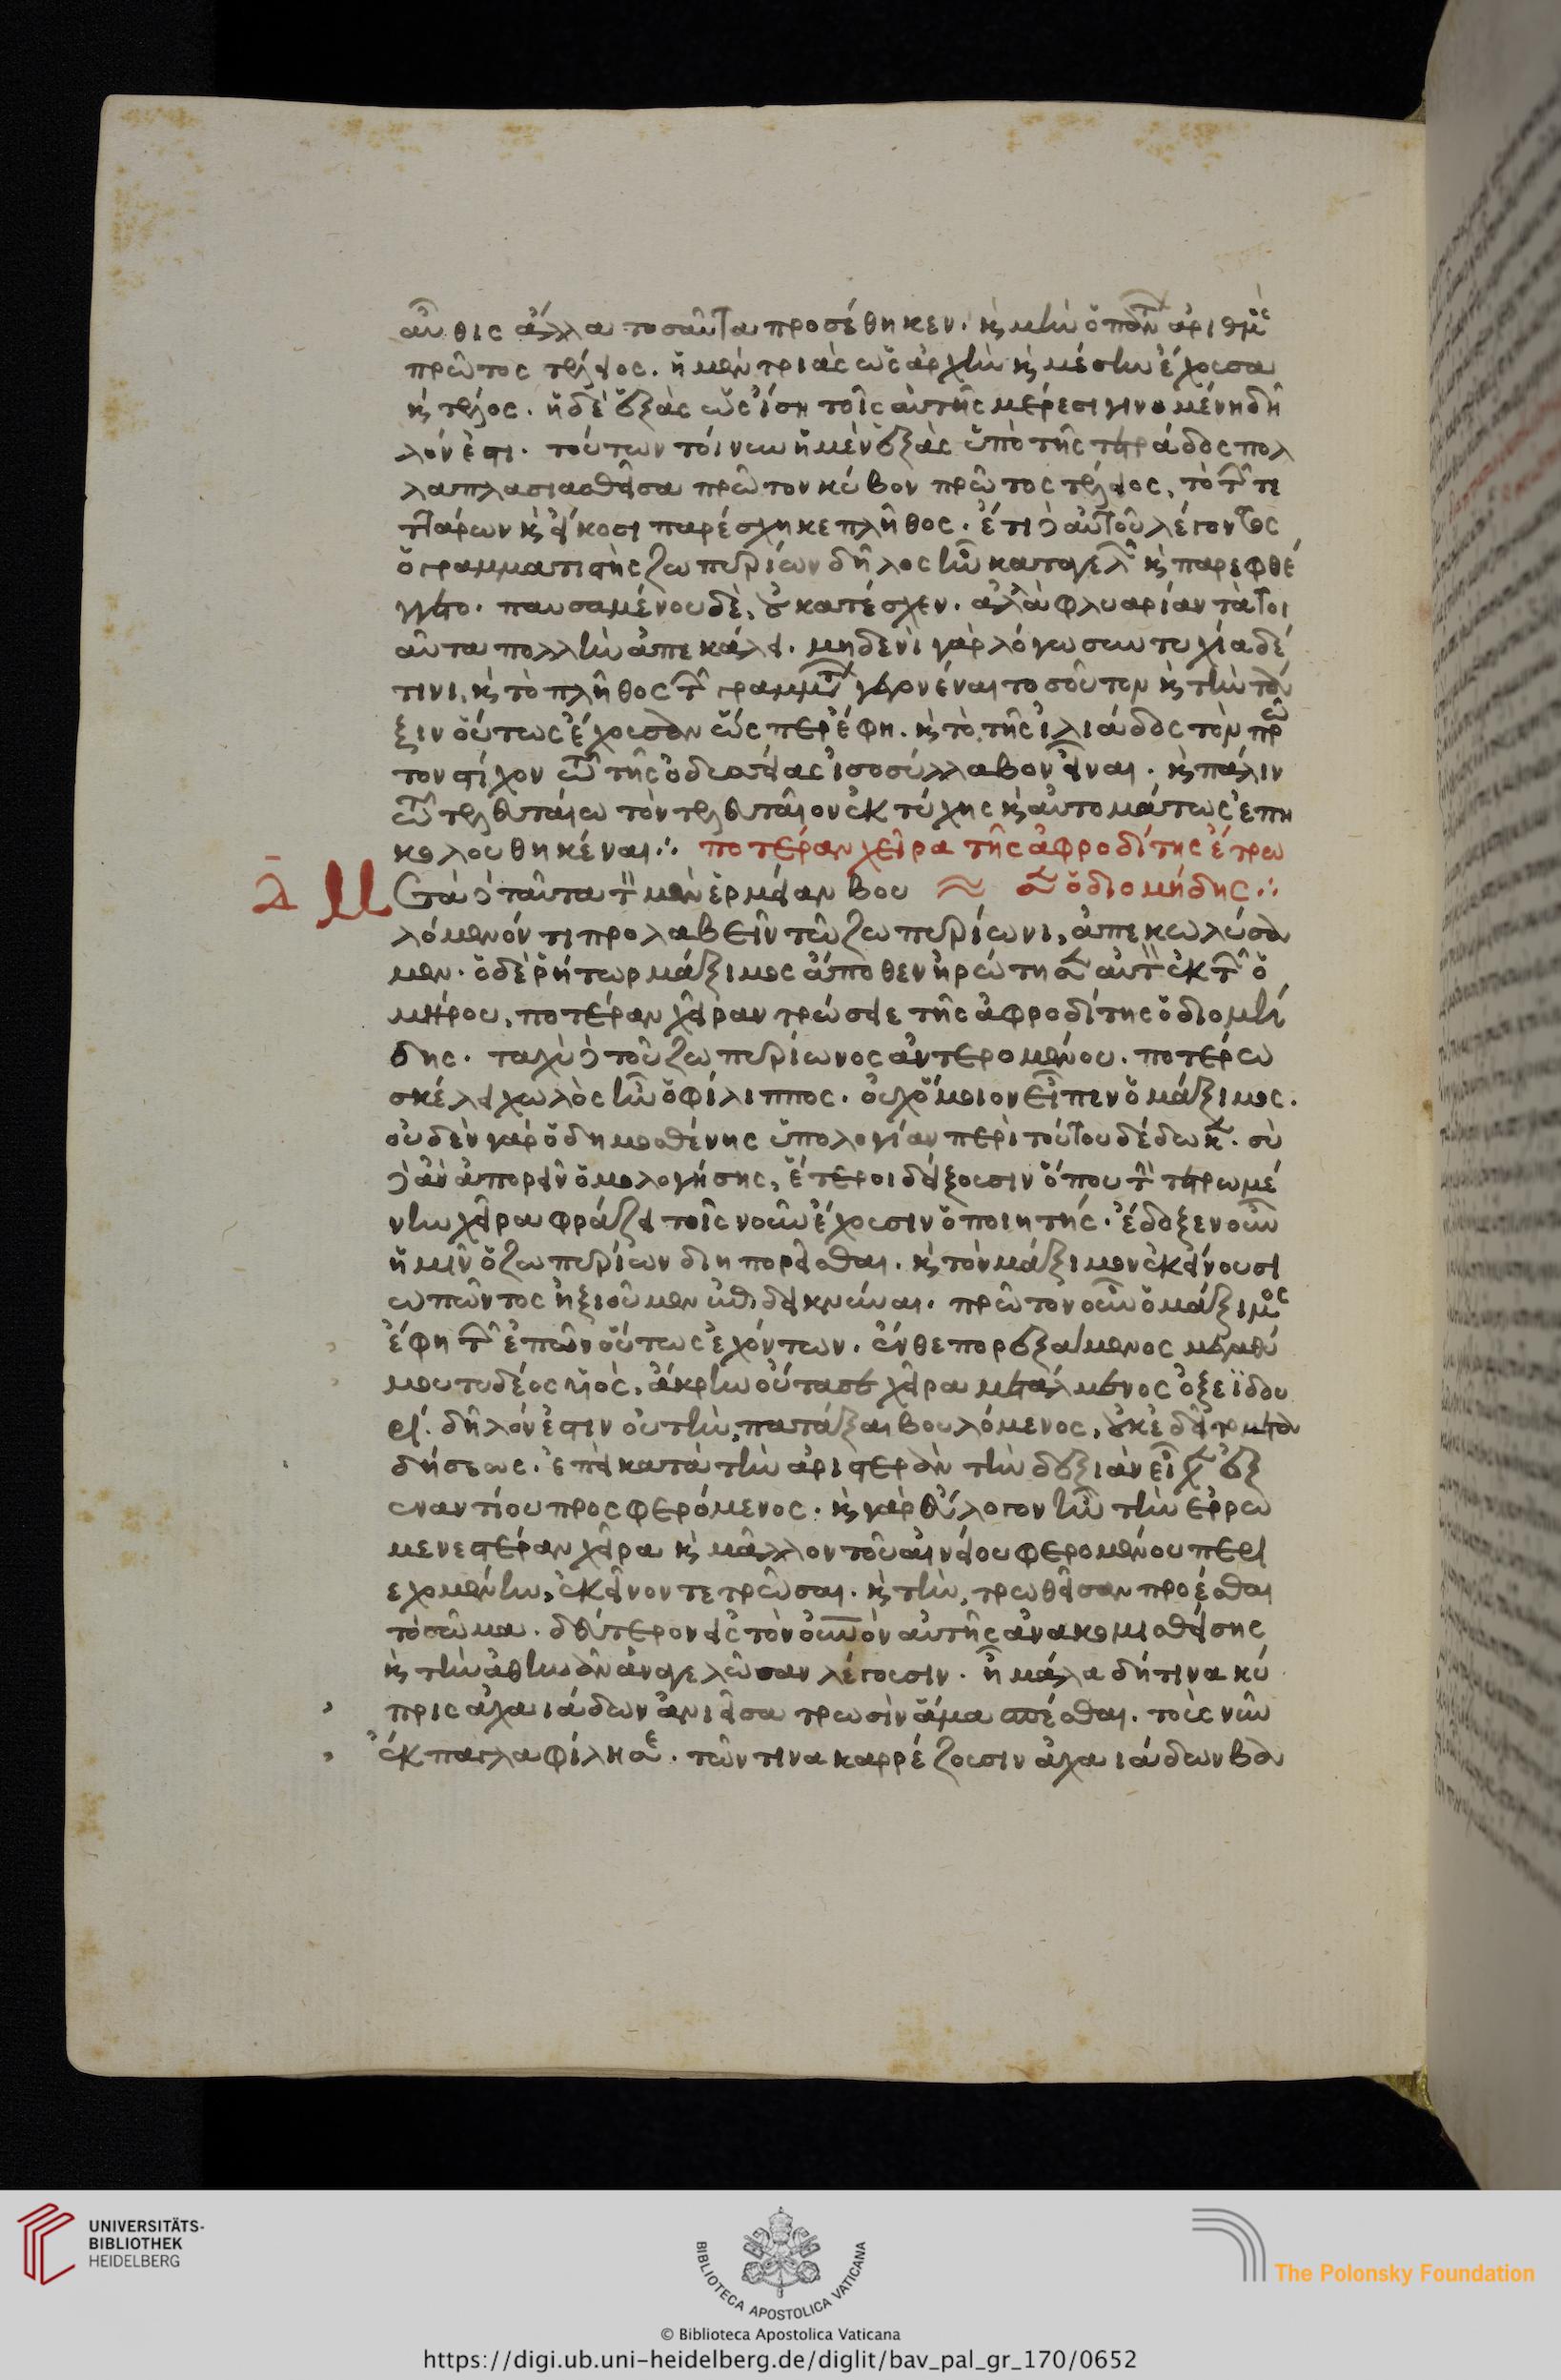 αὖθις ἄλλα τοσαῦτα προσέθηκεν. κ̀ μὴν ὁ πρῶτων ἀριθμὸς
πρῶτος τέλειος. ἡ μὲν τριὰς ὡς ἀρχὴν κ̀ μέσην ἔχουσα
κ̀ τέλος. ἡ δὲ ἑξὰς ὡς ἴση τοῖς αὑτῆς μέρεσι γινομένη δῆ
λόν ἐστι. τούτων τοίνυν ἡ μὲν ἑξὰς ὑπὸ τῆς τετράδος πολ
λαπλασιασθεῖσα πρῶτον κύβον πρῶτος τέλειος, τὸ τῶν τε
ττάρων κ̀ εἴκοσι παρέσχηκε πλῆθος. ἔτι δ αὐτοῦ λέγοντος
ὁ γραμματιστὴς ζωπυρίων δῆλος ἦν καταγελῶν κ̀ παρεφθέ
γγετο. παυσαμένου δὲ, οὐ κατέσχεν. ἀλλὰ φλυαρίαν τὰ τοι
αῦτα πολλὴν ἀπεκάλει. μηδενὶ γὰρ λόγω συντυχία δέ
τινι, κ̀ τὸ πλῆθος τῶν γραμμάτων γεγονέναι τοσοῦτον κ̀ τὴν τά
ξιν οὕτως ἔχουσαν ὥσπερ ἔφη. κ̀ τὸ τῆς ἰλιάδος τὸν πρῶ
τον στίχον τῶ τῆς ὀδυσσείας ἰσοσύλλαβον εἶναι. κ̀ πάλιν
τῶ τελευταίω τὸν τελευταῖον ἐκ τύχης κ̀ αὐτομάτως ἐπη
κολουθηκέναι∴ ποτέραν χεῖρα τῆς ἀφροδίτης ἔτρω
δ Μετὰ δ ταῦτα τὸν μὲν ἑρμείαν βου σεν ὁ διομήδης∴
λόμενόν τι προλαβεῖν τῶ ζωπυρίωνι, ἀπεκωλύσα
μεν. ὁ δὲ ῥήτωρ μάξιμος ἄποθεν ἠρώτησεν αὐτὸν ἐκ τῶν ὁ
μήρου, ποτέραν χεῖραν τρώσειε τῆς ἀφροδίτης ὁ διομή
δης. ταχὺ δ τοῦ ζωπυρίωνος ἀντερομένου. ποτέρω
σκέλει χωλὸς ἦν ὁ φίλιππος. οὐχ ὅμοιον εἶπεν ὁ μάξιμος.
οὐδὲν γὰρ ὁ δημοσθένης ὑπολογίαν περὶ τούτου δέδωκεν. σὺ
δ ἂν ἀπορεῖν ὁμολογήσης, ἕτεροι δείξουσιν ὅπου τὴν τετρωμέ
νην χεῖρα φράζει τοῖς νοῦν ἔχουσιν ὁ ποιητής. ἔδοξεν οὖν
ἡμῖν ὁ ζωπυρίων διηπορεῖσθαι. κ̀ τὸν μάξιμον ἐκείνου σι
ωπῶντος ἠξιοῦμεν ἐπιδεικνύναι. πρῶτον οὖν ὁ μάξιμος
ἔφη τῶν ἐπῶν οὕτως ἐχόντων. ἔνθ ἐπορεξάμενος μεγαθύ
μου τυδέος υἱὸς, ἄκρην οὔτασε χεῖρα μετάλμενος ὀξέϊ δου
ρί. δῆλόν ἐστιν οὐ τὴν, πατάξαι βουλόμενος, οὐκ ἐδεῖτο μετα
δήσεως. ἐπεὶ κατὰ τὴν ἀριστερὰν τὴν δεξιὰν εἶχεν ἐξ
εναντίου προσφερόμενος. κ̀ γὰρ εὔλογον ἦν τὴν ἐρρω
μενεστέραν χεῖρα κ̀ μᾶλλον τοῦ αἰνείου φερομένου περι
εχομένην, ἐκεῖνόν τε τρῶσαι. κ̀ τὴν, τρωθεῖσαν προέσθαι
τὸ σῶμα. δεύτερον εἰς τὸν οὐνὸν αὐτῆς ἀνακομισθείσης
κ̀ τὴν ἀθηνᾶν ἀναγελῶσαν λέγουσιν. ἦ μάλα δή τινα κύ
πρις ἀχαιιάδων ἀνιεῖσα τρωσὶν ἅμα σπέσθαι. τοὺς νῦν
ἔκπαγλα φίλησεν. τῶν τινα καρρέζουσιν ἀχαιιάδων βα
UNIVERSITÄTS-
BIBLIOTHEK
HEIDELBERG
BIBLIOTECA APOSTOLICA VATICANA
The Polonsky Foundation
© Biblioteca Apostolica Vaticana
https://digi.ub.uni-heidelberg.de/diglit/bav_pal_gr_170/0652